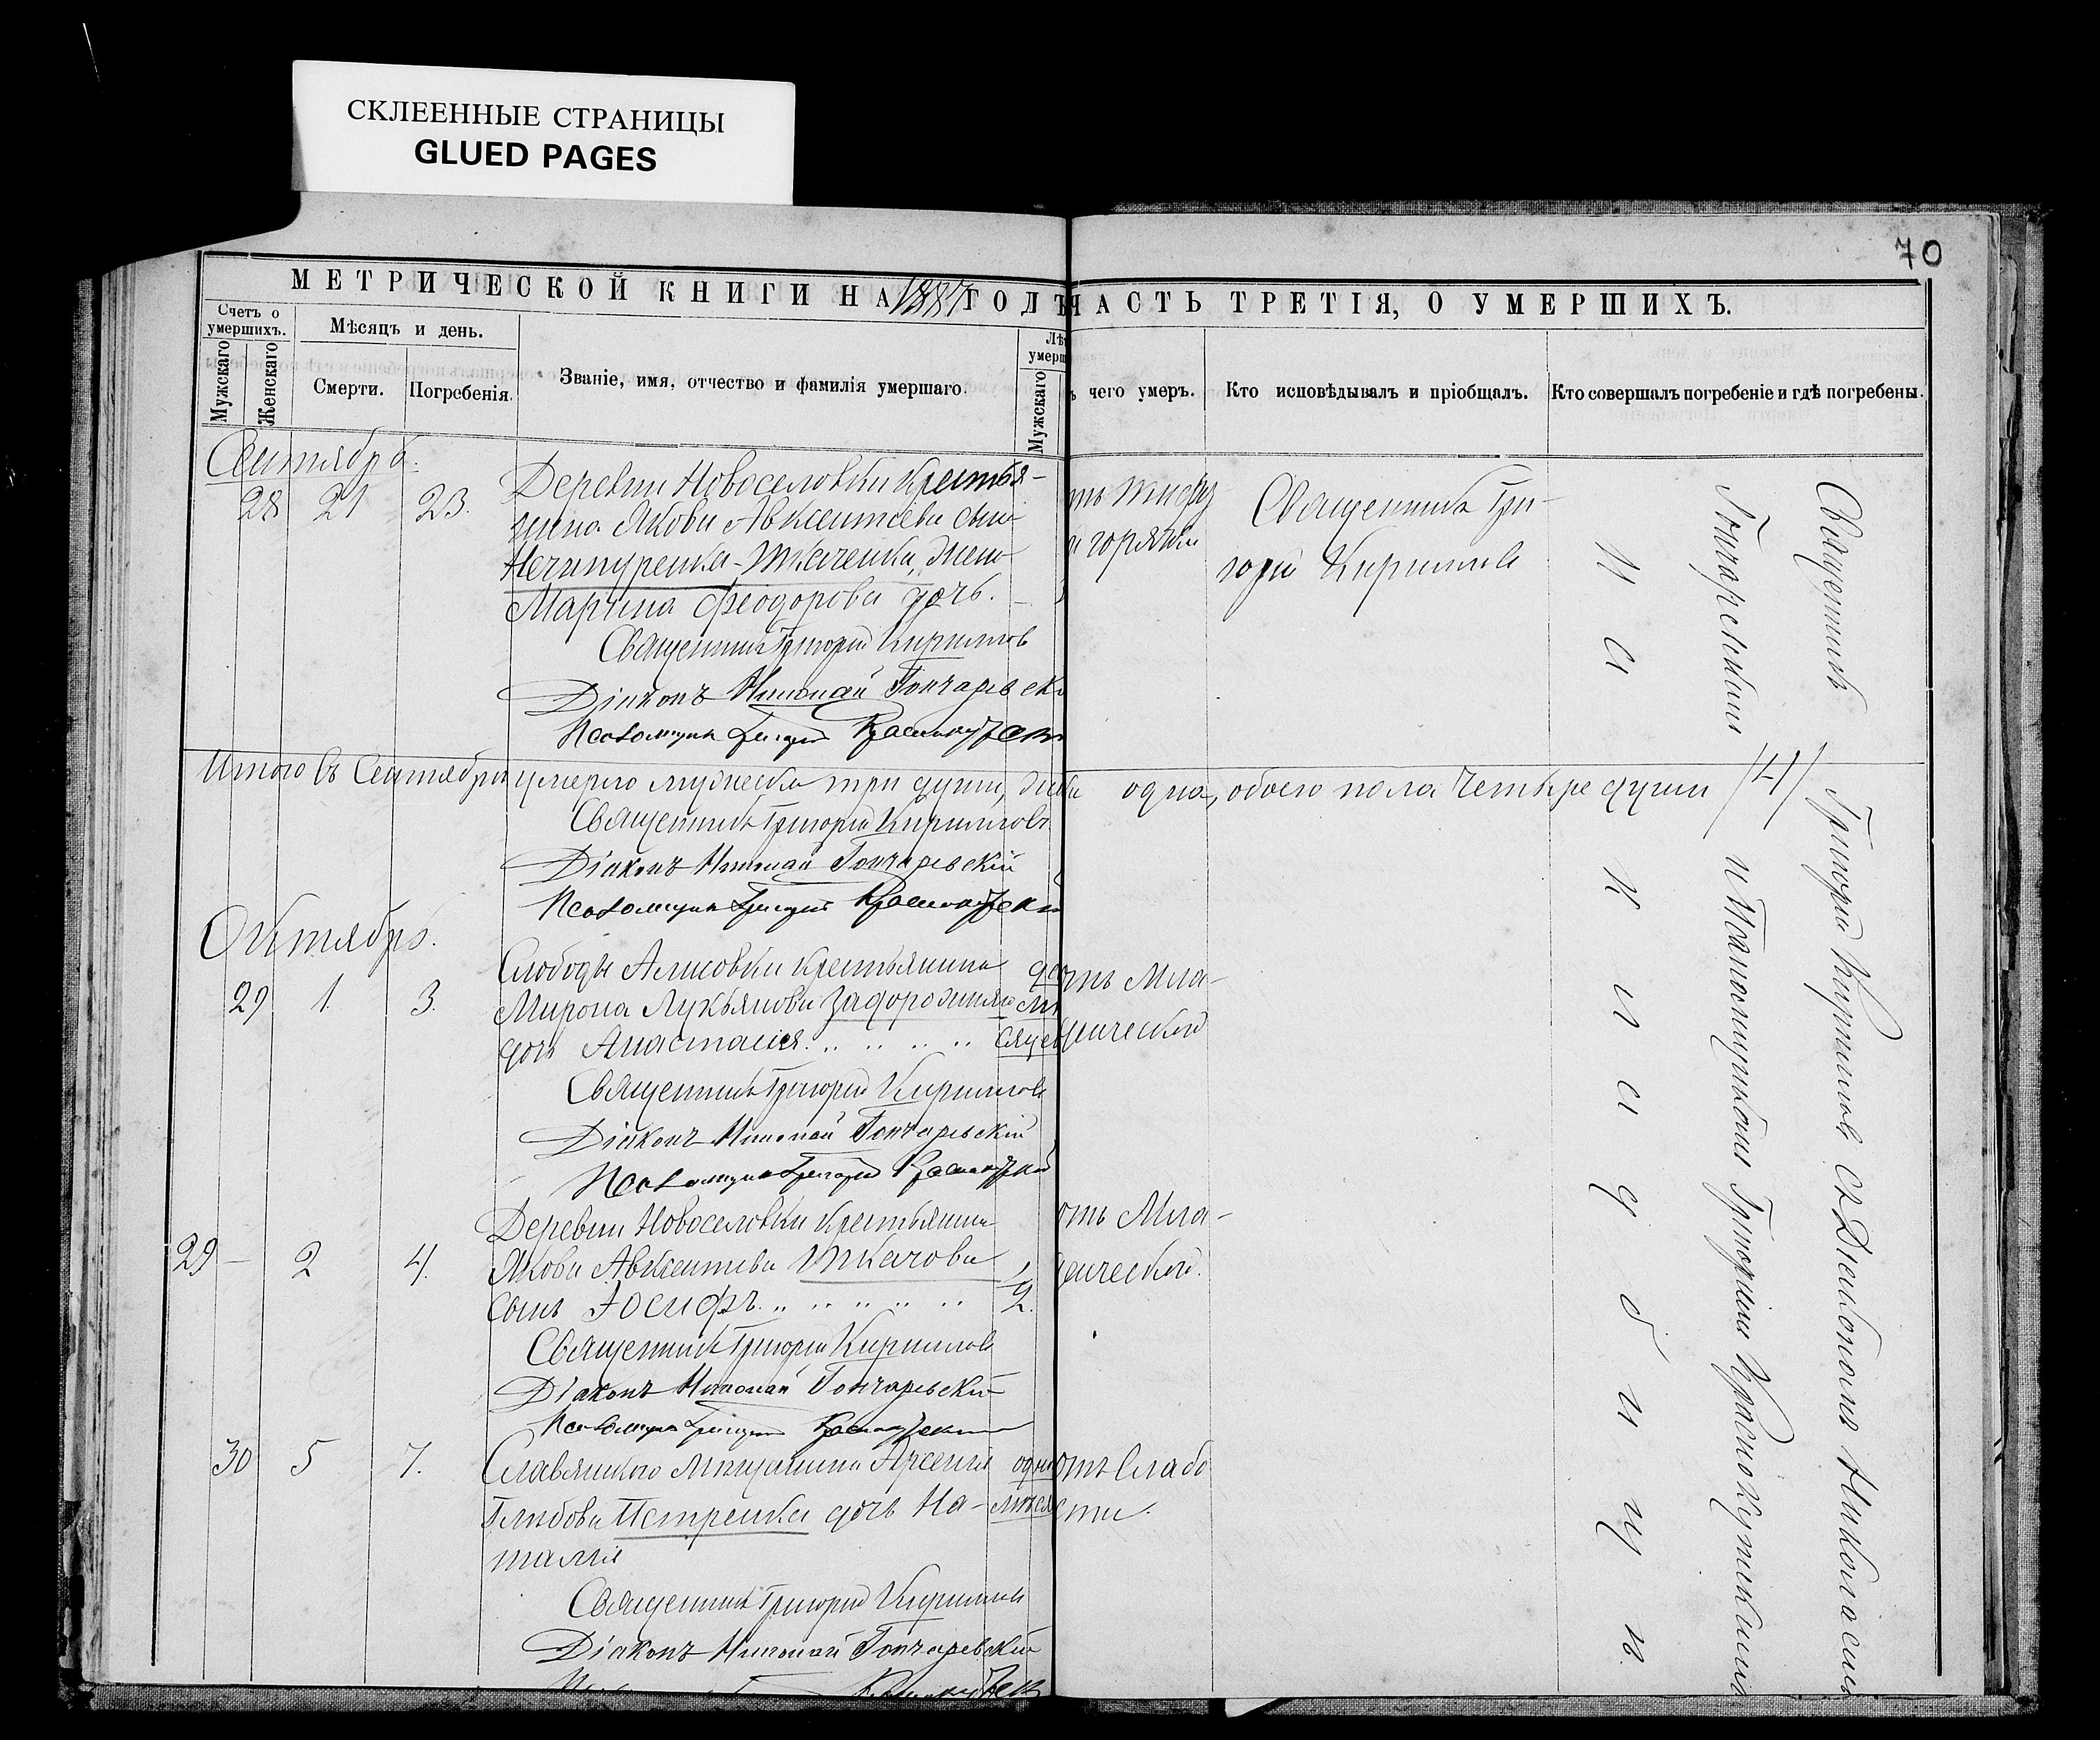 СКЛЕЕННЫЕ СТРАНИЦЫ
GLUED PAGES
70
МЕТРИЧЕСКОЙ КНИГИ НА 1887 ГОДЪ
ЧАСТЬ ТРЕТІЯ, О УМЕРШИХЪ.
Счетъ о умершихъ.
Мужскаго
Женскаго
Мѣсяцъ и день.
Смерти.
Погребенія.
Званіе, имя, отчество и фамилія умершаго.
Лѣ
умерш
Мужскаго
ъ чего умеръ.
Кто исповѣдывалъ и пріобщалъ.
Кто совершалъ погребеніе и гдѣ погребены.
Сентябрь.
28 21 23.
Деревни Новоселовки крестья-
нина Якова Авксентіева сына
Нечипуренка-Ткаченка, жена
Марина Феодорова дочь.
горячки
Священникъ Гри-
горій Кирилловъ
Священникъ Григорій Кирилловъ
Діаконъ Николай Гончаревскі
Псаломщикъ Григорій Краснокутскі
Итого въ Сентябрѣ умерло мужеска три души, женска одна, обоего пола четыре души /4/
Священникъ Григорій Кирилловъ
Діаконъ Николай Гончаревскій
Псаломщикъ Григорій Краснокутскій
Октябрь.
29 1. 3.
Слободы Алисовки крестьянина
Мирона Лукьянова Задорожняго
дочь Анастасія.
отъ Мла-
денческой
Священникъ Григорій Кирилловъ
Діаконъ Николай Гончаревскій
Псаломщикъ Григорій Краснокутскій
29 - 2 4.
Деревни Новоселовки крестьянина
Якова Авксентіева Ткачова
сынъ Іосифъ.
2.
отъ Мла-
денческой.
Священникъ Григорій Кирилловъ
Діаконъ Николай Гончаревскій
Псаломщикъ Григорій Краснокутскій
30 5 7.
Славянскаго мѣщанина Арсенія
Глѣбова Петренка дочь На-
талія
отъ слабо
сти.
Священникъ Григорій Кирилловъ
Діаконъ Николай Гончаревскій
Священникъ Григорій Кирилловъ съ Діакономъ Николаемъ
Гончаревскимъ и Псаломщикомъ Григоріемъ Краснокутскимъ
На кладбищѣ